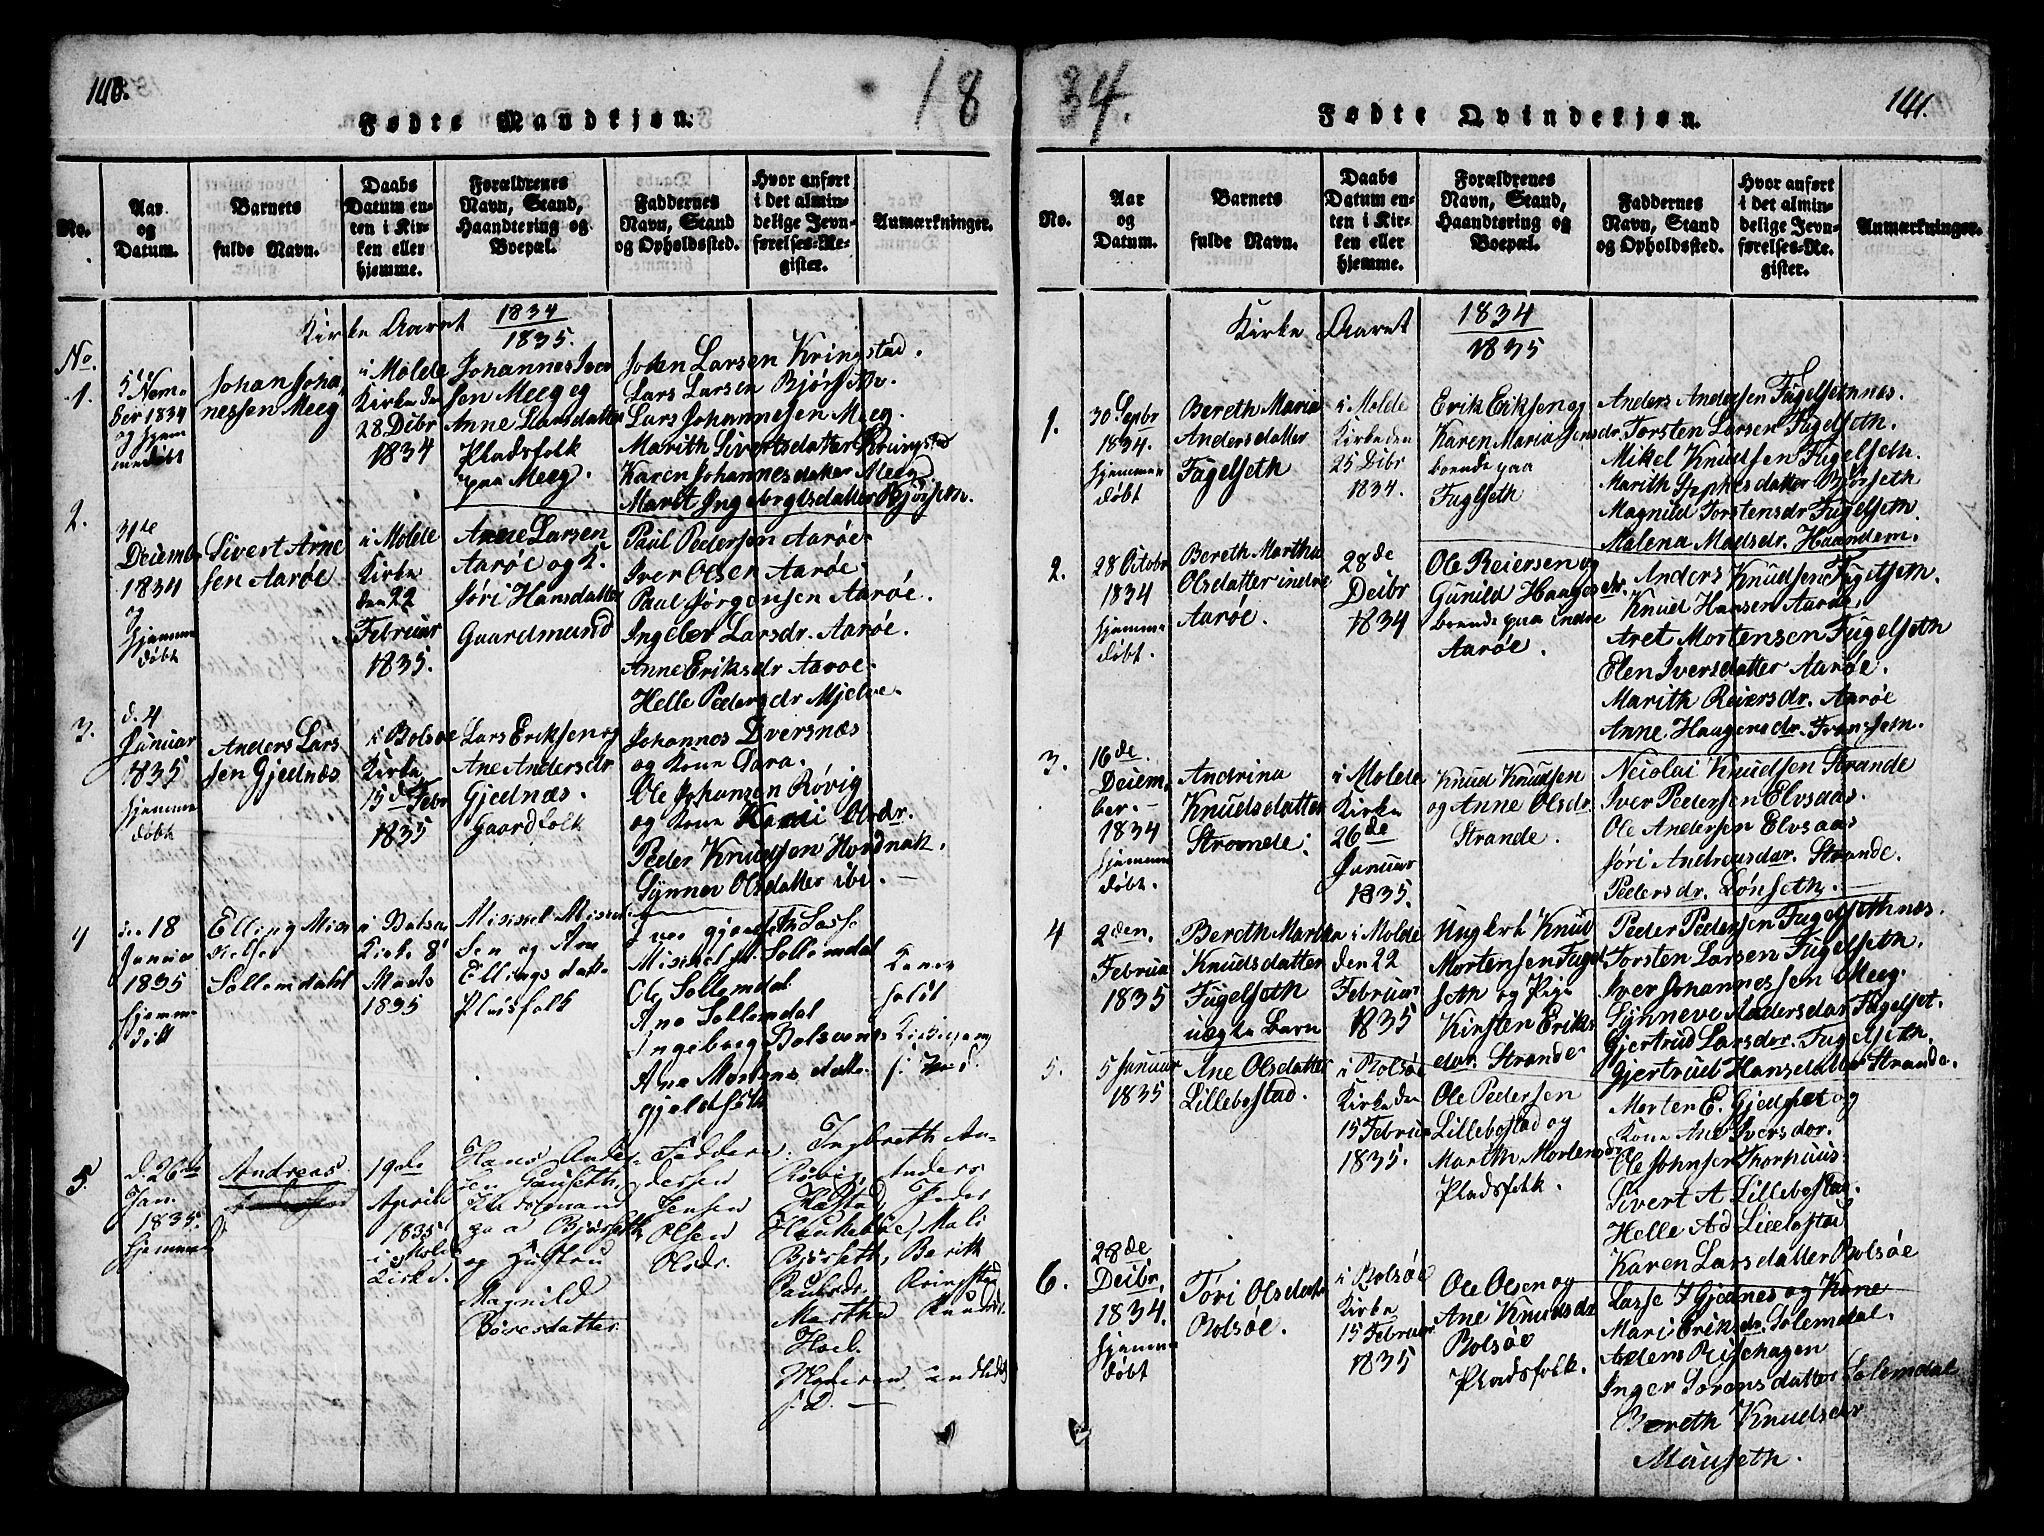 140.
18
Fødte Mandkjøn.
No.
Aar
og
Datum.
Barnets
fulde Navn.
Daabs
Datum en-
ten i Kir-
ken eller
hjemme.
Forældrenes
Navn, Stand,
Haandtering og
Boepæl.
Faddernes
Navn, Stand
og Opholdssted.
Hvor anført
i det almin-
delige Jevn-
førelses-Re-
gister.
Anmærkninger.
Kirke Aaret 1834
1835.
No.
1.
Novem
ber 1834
hjem
medøbt
Johan Joha,
nessen Meeg
i Molde
Kirke den
28 Dibr
1834
Johannes Iver
sen Meeg og
Anne Larsdatter
Pladsfolk
paa Meeg.
John Larsen Kringstad.
Lars Larsen Bjørseth.
Lars Johannesen Meeg.
Marith Sivertsdatter Kringstad
Karen Johannesdatter Meeg.
Marit Ingebrigtsdatter Bjørseth.
2.
31te
Deiembr
1834
hjemme
døbt
Sivert Arne
sen Aarøe
i Molde
Kirke
den 22
Februar
1835.
Arne Larsen
Aarøe og K.
Jøri Hansdatter
Gaardmand
Paul Pedersen Aarøe.
Iver Olsen Aarøe.
Paul Jørgensen Aarøe.
Ingeber Larsdr. Aarøe.
Anne Eriksdr Aarøe.
Helle Pedersdr Mjelve.
3.
d. 4
Januar
1835
hjemme
døbt
Anders Lars
sen Gjednæs
i Bolsøe
Kirke
15 de Febr
1835
Lars Eriksen og
Ane Andersdr
Gjednæs.
Gaardfolk
Johannes Dversnæs
og Kone Sara.
Ole Johansen Røvig
og Kone Olsdr.
Peder Knudsen Hordnak.
Synnev Olsdatter ibi.
4
18
Januar
1835
hjemme
Elling Mic
kelsen
Sollemdahl
i Bolsø
Kirke 8
Marts
1835
Mickel Mick
sen og Ane
Ellings datt.
Pladsfolk
Mickel M. Sollemdal
Ole Sollemdal
Ane Sollemdal
Ingeborg Bolsøenes
Ane Mortens datter
gjeldseth
5.
d. 26de
Jan.
1835.
hjemmed
Andreas
19de
April
1835
i Molde
Kirke.
Hans Ander
sen Gauseth,
paa Bjørseth
og Hustru
Magnild
Børesdatter
Faddere: Ingbreth An-
dersen Røbig, Anders
Jensen Peder
Olsen Mali
Olsdr. Bjørseth, Berith
Paulsdr. Kringstad
Martha Knudsdr
Hoel.
Moderen indledet
s. D.
34.
141.
Fødte Qvindekjøn.
No.
Aar
og
Datum.
Barnets
fulde Navn.
Daabs
Datum en-
ten i Kir-
ken eller
hjemme.
Forældrenes
Navn, Stand,
Haandtering og
Boepæl.
Faddernes
Navn, Stand
og Opholdssted.
Hvor anført
i det almin-
delige Jevn-
førelses-Re-
gister.
Anmærkninger.
Kirke Aaret 1834
1835
1.
30 Sepbr
1834.
hjemme
døbt
Bereth Maria
Andersdatter
Fugelseth
i Molde
Kirke den
25 Dibr
1834.
Erik Eriksen og
Karen Maria Jensdr.
boende paa
Fuglseth
Anders Andersen Fugelsethnes.
Torsten Larsen Fugelseth.
Mikel Knudsen Fugelseth.
Marith Stephesdatter Bjørseth
Magnild Torstensdr Fugelseth.
Malena Madsdr. Haandem.
2.
28 Octobr
1834
hjemme
døbt.
Bereth Martha
Olsdatter indre
Aarøe.
28de
Deibr
1834
Ole Reiersen og
Gunild Haagesdr.
boende paa indre
Aarøe.
Anders Knudsen Fugelseth.
Knud Hansen Aarøe.
Aret Mortensen Fugelseth
Elen Iversdatter Aarøe.
Marith Reiersdr. Aarøe
Anne Haagensdr. Franseth.
3.
16de
Deiem,
ber.
1834
hjemme
døbt.
Andrina
Knudsdatter
Strande.
i Molde
Kirke
26de
Januar
1835.
Knud Knudsen
og Anne Olsdr.
Strande.
Neiolai Knudsen Strande
Iver Pedersen Elvsaas.
Ole Andersen Elvsaas
Jøri Andreasdr. Strande.
Pedersdr. Lønseth.
4
2den.
Februar
1835
Bereth Martha
Knudsdatter
Fugelseth
uægte Barn
i Molde
den 22
Februar
1835
Ungkarl Knud
Mortensen Fugel
seth og Pige
Kirsten Eriks
datr. Strande
Peder Pedersen Fugelsethnes.
Torsten Larsen Fugelseth.
Iver Johannessen Meeg.
Synneve Andersdatr Fugelset.
Gjertrud Larsdatr. Fugelseth.
Gjertrud Hansdatter Strande.
5.
5 Januar
1835
Ane Olsdatter
Lillebostad.
i Bolsøe
Kirke den
15 Februar
1835.
Ole Pedersen
Lillebostad og
Marith Mortensdr
Pladsfolk.
Morten E. Gjedset og
Kone Ane Iversdr.
Ole Johnsen Thorhuus
Sivert A Lillebostad.
Helle Ad Lillebostad
Karen Larsdatter Bolsøe
6.
28de
Deibr,
1834.
hjemme
døbt
Tøri Olsdatter
Bolsøe.
i Bolsøe
Kirke
15 Februar
1835
Ole Olsen og
Ane Knudsdr
Bolsøe
Pladsfolk.
Lasse T Gjednes og Kone
Mari Eriksdr. Solemdal.
Anders Risehagen
Inger Sørensdatter Solemdal
Bereth Knudsdr
Mauseth.